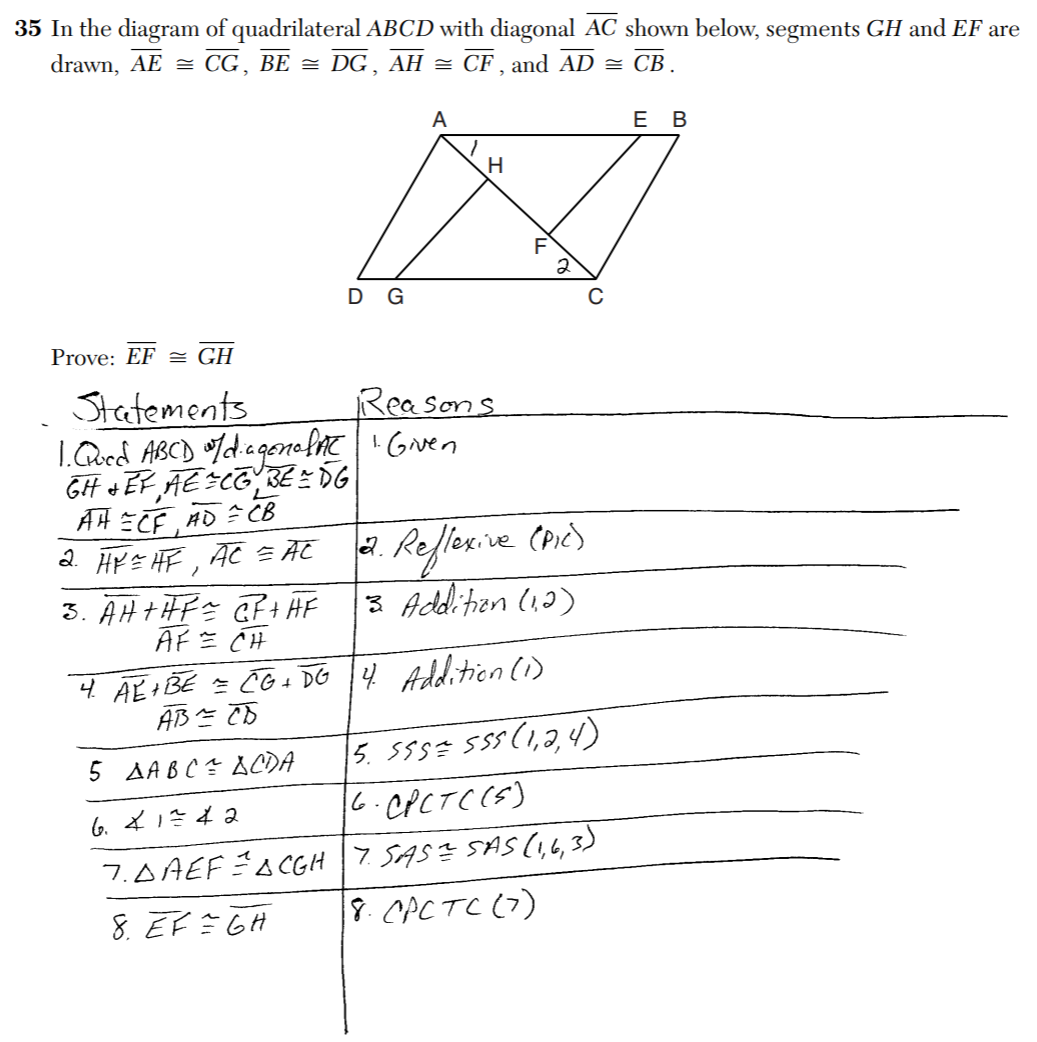 35 In the diagram of quadrilateral ABCD with diagonal AC shown below, segments GH and EF are
drawn, AE ≅ CG, BE ≅ DG, AH ≅ CF, and AD ≅ CB.
A E B
1
H
F
2
D G C
Prove: EF ≅ GH
Statements Reasons
1. Quad ABCD w/diagonal AC 1. Given
GH & EF, AE ≅ CG, BE ≅ DG
AH ≅ CF, AD ≅ CB
2. HF ≅ HF, AC ≅ AC 2. Reflexive (Pic)
3. AH + HF ≅ CF + HF 3 Addition (1,2)
AF ≅ CH
4. AE + BE ≅ CG + DG 4. Addition (1)
AB ≅ CD
5 △ABC ≅ △CDA 5. SSS ≅ SSS (1,2,4)
6. ∡1 ≅ ∡2 6. CPCTC (5)
7. △AEF ≅ △CGH 7. SAS ≅ SAS (1,6,3)
8. EF ≅ GH 8. CPCTC (7)